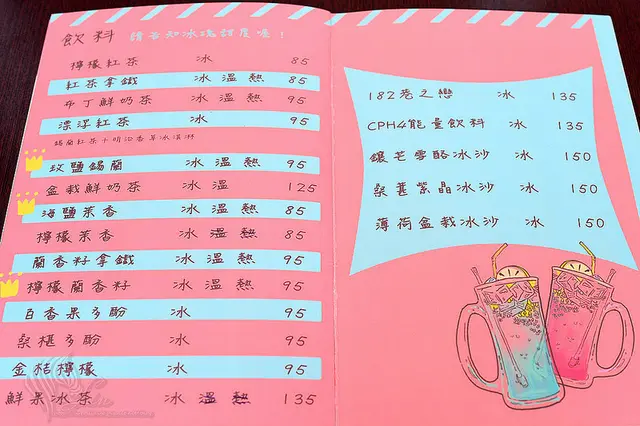 飲料 請告知冰塊甜度喔！
檸檬紅茶 冰 85
紅茶拿鐵 冰 溫 熱 85
布丁鮮奶茶 冰 溫 熱 95
漂浮紅茶 冰 95
錫蘭紅茶+明治香草冰淇淋
玫鹽錫蘭 冰 溫 熱 95
盆栽鮮奶茶 冰 溫 125
海鹽茶香 冰 溫 熱 85
檸檬茶香 冰 溫 熱 85
蘭香籽拿鐵 冰 溫 熱 95
檸檬蘭香籽 冰 溫 熱 95
百香果多酚 冰 95
桑椹多酚 冰 95
金桔檸檬 冰 95
鮮果冰茶 冰 溫 熱 135
182巷之戀 冰 135
CPH4能量飲料 冰 135
鑲芒雪酪冰沙 冰 150
桑葚紫晶冰沙 冰 150
薄荷盆栽冰沙 冰 150